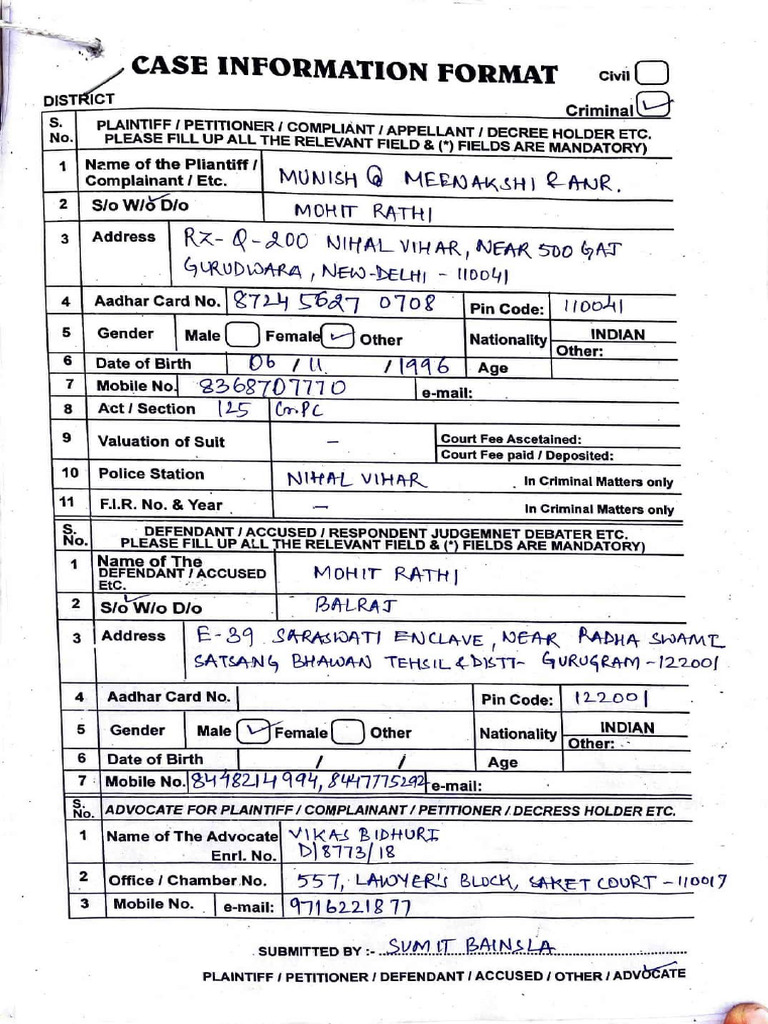 CASE INFORMATION FORMAT
Civil
DISTRICT
Criminal ✓
S. No. PLAINTIFF / PETITIONER / COMPLIANT / APPELLANT / DECREE HOLDER ETC.
PLEASE FILL UP ALL THE RELEVANT FIELD & (*) FIELDS ARE MANDATORY)
1 Name of the Pliantiff / Complainant / Etc. MUNISH @ MEENAKSHI & ANR.
2 S/o W/o D/o MOHIT RATHI
3 Address RZ-Q-200 NIHAL VIHAR, NEAR 500 GAJ
GURUDWARA, NEW-DELHI - 110041
4 Aadhar Card No. 8724 5627 0708 Pin Code: 110041
5 Gender Male Female ✓ Other Nationality INDIAN
Other:
6 Date of Birth 06 / 11 / 1996 Age
7 Mobile No. 8368707770 e-mail:
8 Act / Section 125 Cr.PC
9 Valuation of Suit – Court Fee Ascetained:
Court Fee paid / Deposited:
10 Police Station NIHAL VIHAR In Criminal Matters only
11 F.I.R. No. & Year – In Criminal Matters only
S. No. DEFENDANT / ACCUSED / RESPONDENT JUDGEMNET DEBATER ETC.
PLEASE FILL UP ALL THE RELEVANT FIELD & (*) FIELDS ARE MANDATORY)
1 Name of The DEFENDANT / ACCUSED EtC. MOHIT RATHI
2 S/o W/o D/o BALRAJ
3 Address E-39 SARASWATI ENCLAVE, NEAR RADHA SWAMI
SATSANG BHAWAN TEHSIL & DISTT- GURUGRAM - 122001
4 Aadhar Card No. Pin Code: 122001
5 Gender Male ✓ Female Other Nationality INDIAN
Other:
6 Date of Birth / / Age
7 Mobile No. 8448214994, 8447775292 e-mail:
S. No. ADVOCATE FOR PLAINTIFF / COMPLAINANT / PETITIONER / DECRESS HOLDER ETC.
1 Name of The Advocate VIKAS BIDHURI
Enrl. No. D/8773/18
2 Office / Chamber No. 557, LAWYER'S BLOCK, SAKET COURT - 110017
3 Mobile No. e-mail: 9716221877
SUBMITTED BY :- SUMIT BAINSLA
PLAINTIFF / PETITIONER / DEFENDANT / ACCUSED / OTHER / ADVOCATE